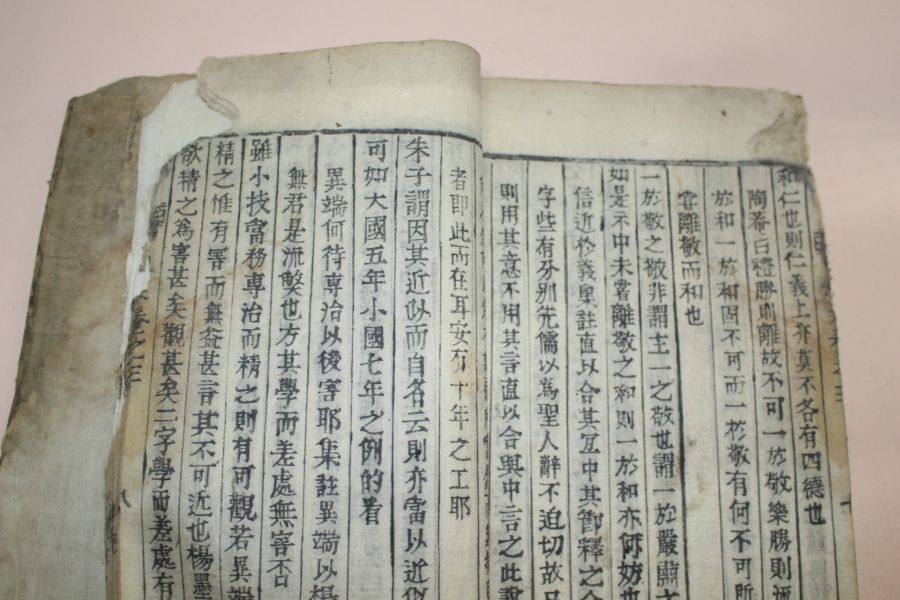 和仁也則仁義上亦莫不各有四德也
陶菴曰禮勝則離故不可一於敬樂勝則流
於和一於和固不可而一於敬有何不可所
離敬而和也
一於敬之敬非謂主一之敬也謂一於嚴肅之
如是示中未嘗離敬之和則一於和亦何妨也
信近於義集註直以合其宜中其節釋之
字些有分別先儒以爲聖人辭不迫切故
則用其意不用其言直以合與中言之此說
者即此而在耳安有十年之工耶
朱子謂因其近似而自名云則亦當以近似
可如大國五年小國七年之例的看
異端何待專治以後害耶集註異端以楊
無君是流弊也方其學而差處無害否
雖小技當務專治而精之則有可觀若異端
精之惟有害而無益甚言其不可近也楊墨
欲精之爲害甚矣觀甚矣二字學而差處有